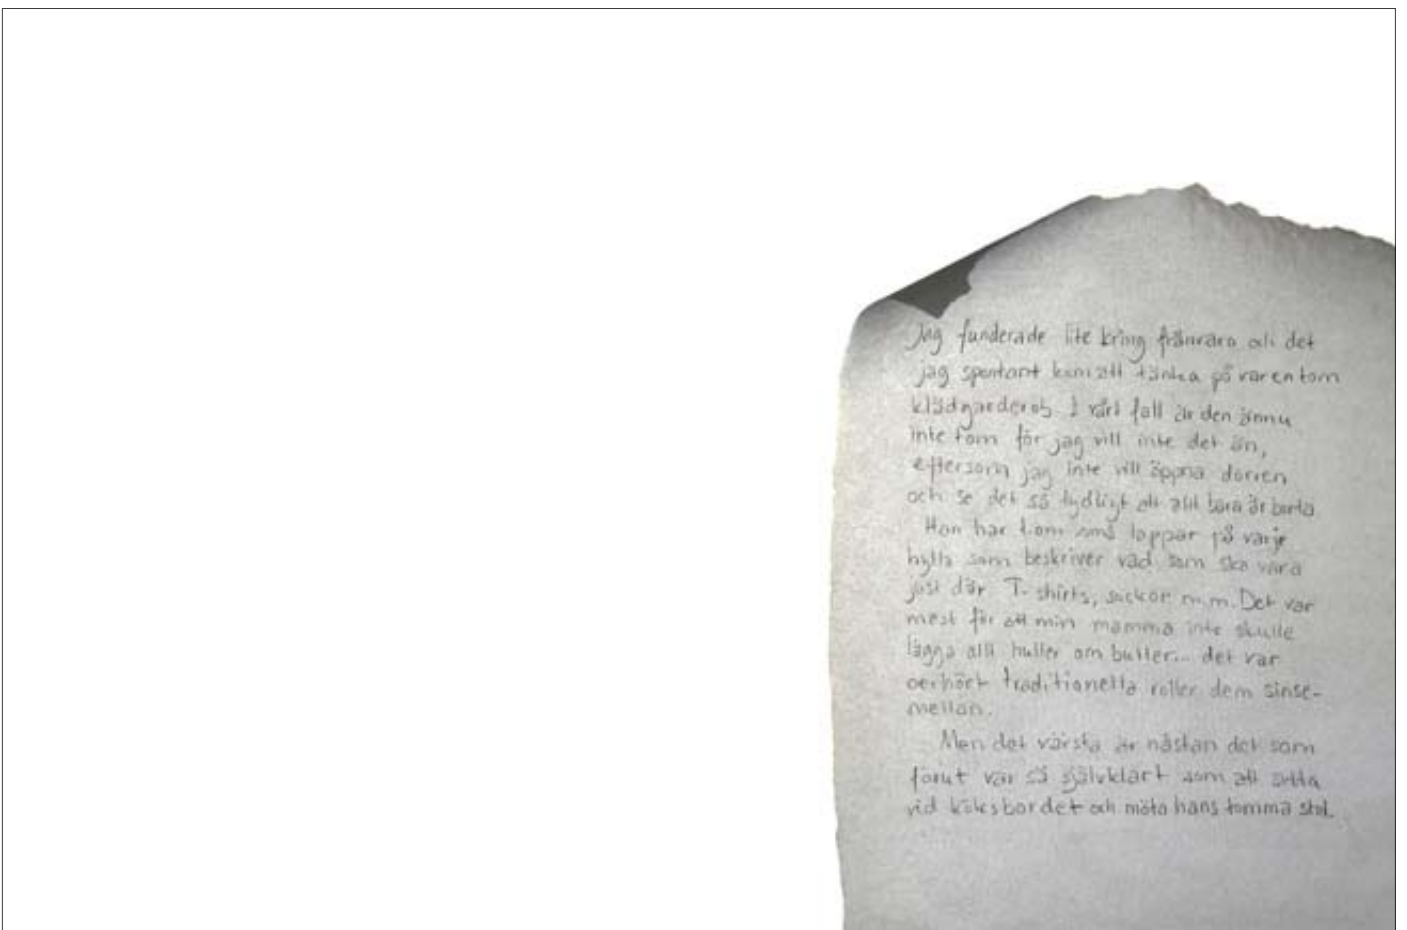 Jag funderade lite kring frånvaro och det
jag spontant kom att tänka på var en tom
klädgarderob. I vårt fall är den ännu
inte tom för jag vill inte det än,
eftersom jag inte vill öppna dörren
och se det så tydligt att allt bara är borta
Han har t.om små lappar på varje
hylla som beskriver vad som ska vara
just där T-shirts, sockor m.m. Det var
mest för att min mamma inte skulle
lägga allt huller om buller... det var
oerhört traditionella roller dem sinse-
mellan.
Men det värsta är nästan det som
förut var så självklart som att sitta
vid köksbordet och möta hans tomma stol.